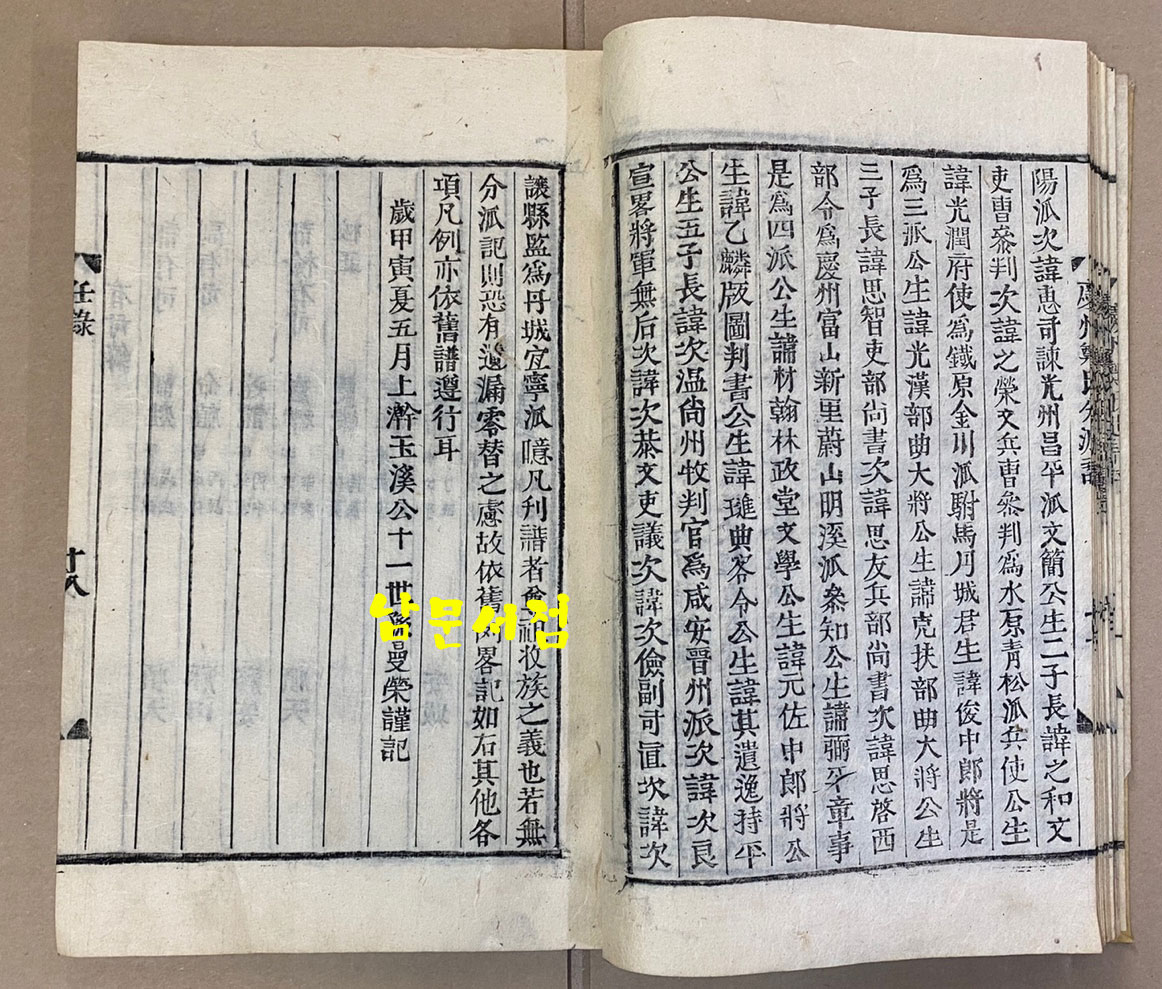 陽派次諱惠司諫光州昌平派文簡公生二子長諱之和文
吏曹參判次諱之榮文兵曹參判爲水原靑松派兵使公生
諱光潤府使爲鐵原金川派駙馬月城君生諱俊中郎將是
爲三派公生諱光漢部曲大將公生諱克扶部曲大將公生
三子長諱思智吏部尙書次諱思友兵部尙書次諱思啓西
部令爲慶州富山新里蔚山明溪派叅知公生諱彌平章事
是爲四派公生諱材翰林政堂文學公生諱元佐中郎將公
生諱乙麟版圖判書公生諱璡典客令公生諱其遺逸持平
公生五子長諱次温尙州牧判官爲咸安晉州派次諱次良
宣畧將軍無后次諱次恭文吏議次諱次儉副司直次諱次
讓縣監爲丹城宜寧派噫凡刋譜者尊祖收族之義也若無
分派記則恐有遺漏零替之慮故依舊例畧記如右其他各
項凡例亦依舊譜遵行耳
歲甲寅夏五月上澣玉溪公十一世孫曼榮謹記
任錄
十八
남문서점